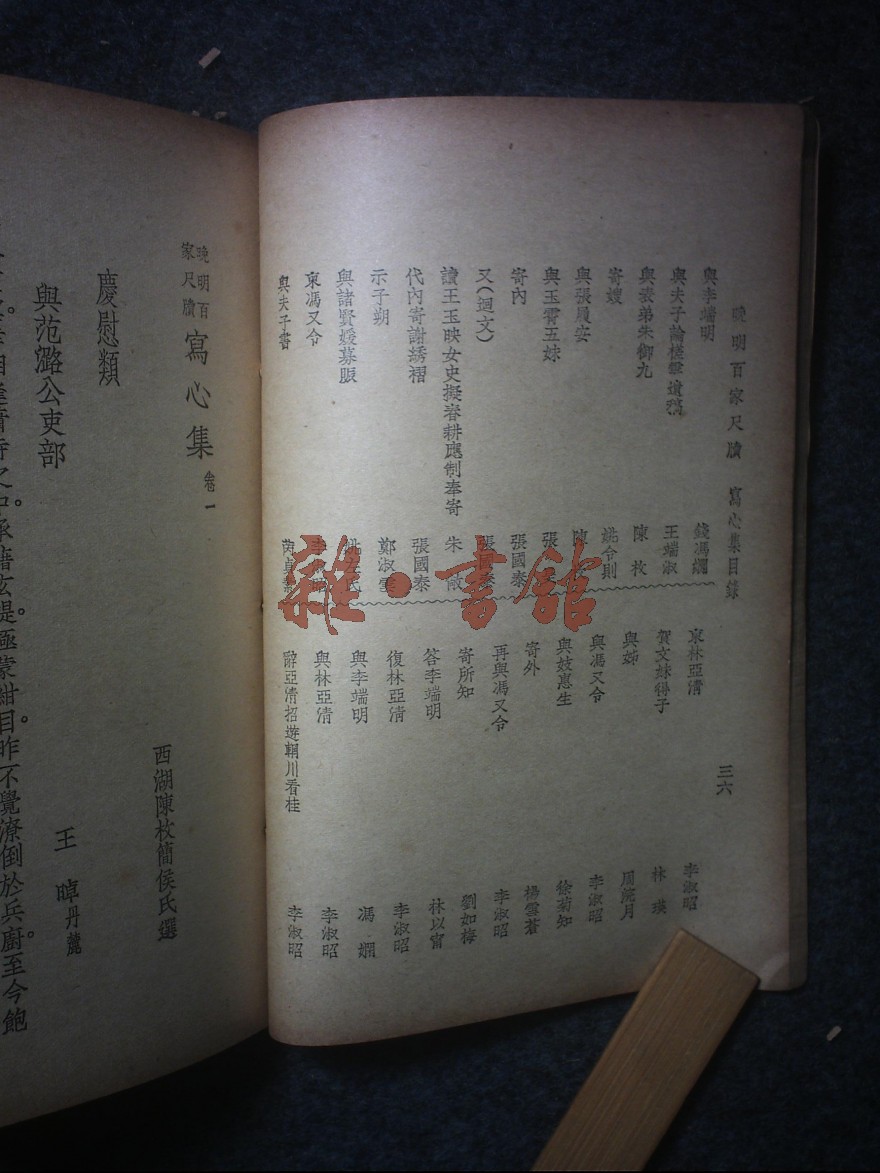 晚明百家尺牘 寫心集目錄
三六
與李端明 錢馮嫻
與夫子論槎雲遺稿 王端淑
與表弟朱御九 陳枚
寄嫂 姚令則
與張履安 陳
與玉霄五妹 張
寄內 張國泰
又(迴文) 張國泰
讀王玉映女史擬春耕應制奉寄 朱
代內寄謝綉褶 張國泰
示子朔 鄭淑雲
與諸賢媛募賑
柬馮又令
與夫子書
柬林亞清 李淑昭
賀文妹得子 林瑛
與姊 周
與馮又令 李淑昭
與妓惠生 徐菊知
寄外 楊雲蒼
再與馮又令 李淑昭
寄所知 劉如梅
答李端明 林以甯
復林亞清 李淑昭
與李端明 馮嫻
與林亞清 李淑昭
辭亞清招遊輞川看桂 李淑昭
雜·書館
晚明百家尺牘 寫心集 卷一
西湖陳枚簡侯氏選
慶慰類
與范潞公吏部
王晫丹麓
極蒙紺目。昨不覺潦倒於兵廚。至今飽